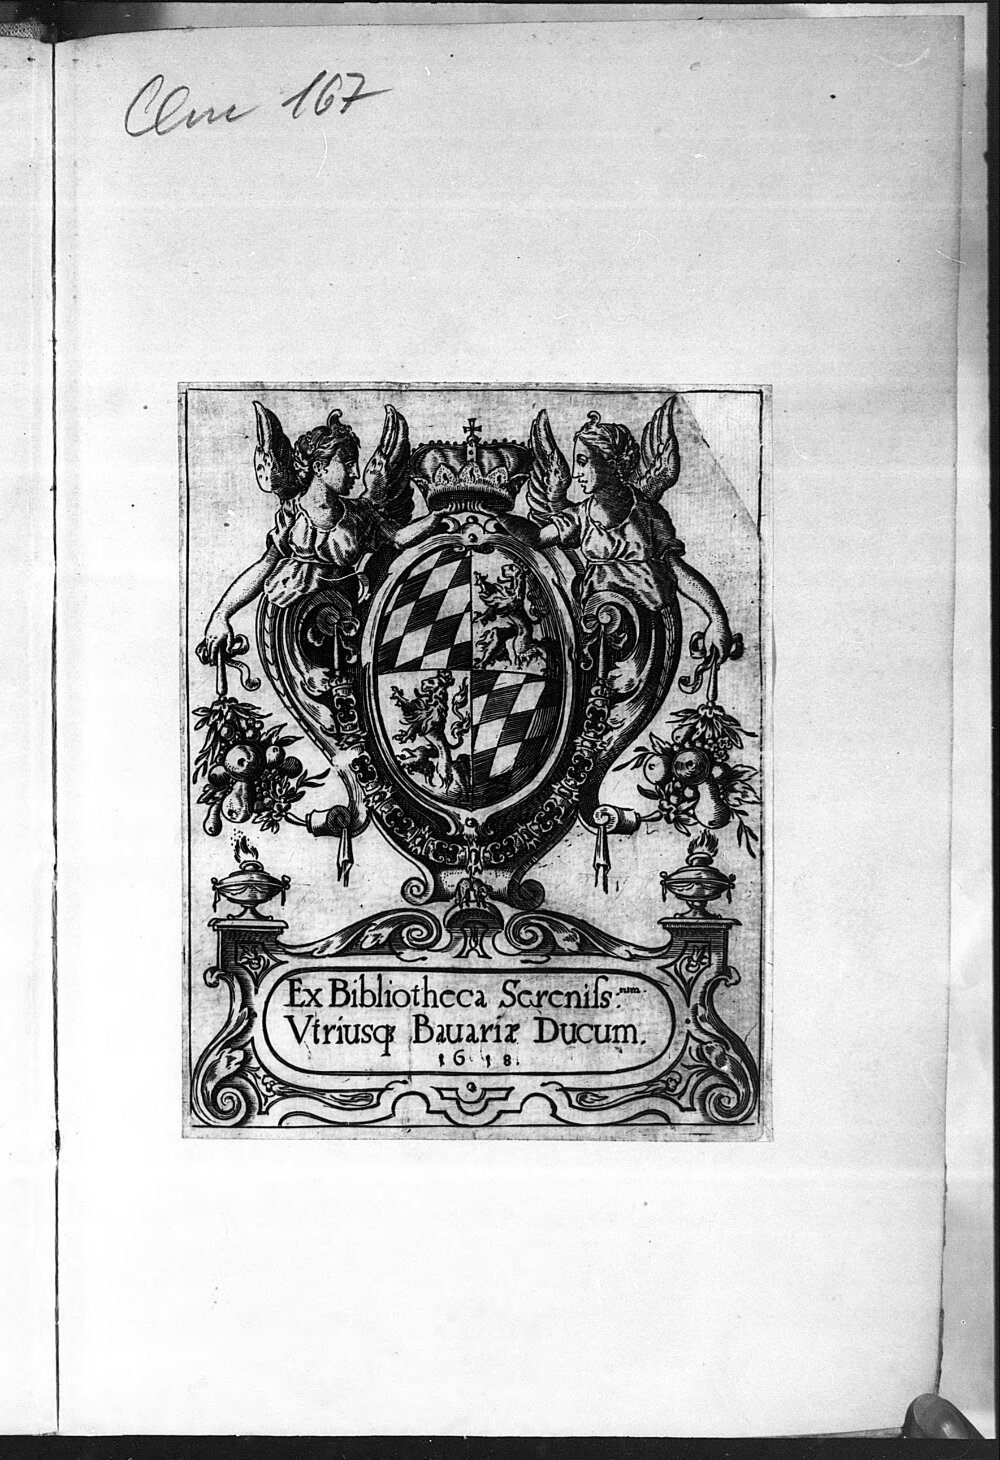 Clm 167
Ex Bibliotheca Sereniſs:ᵐᵘᵐ
Vtriusq; Bauariæ Ducum.
1618.